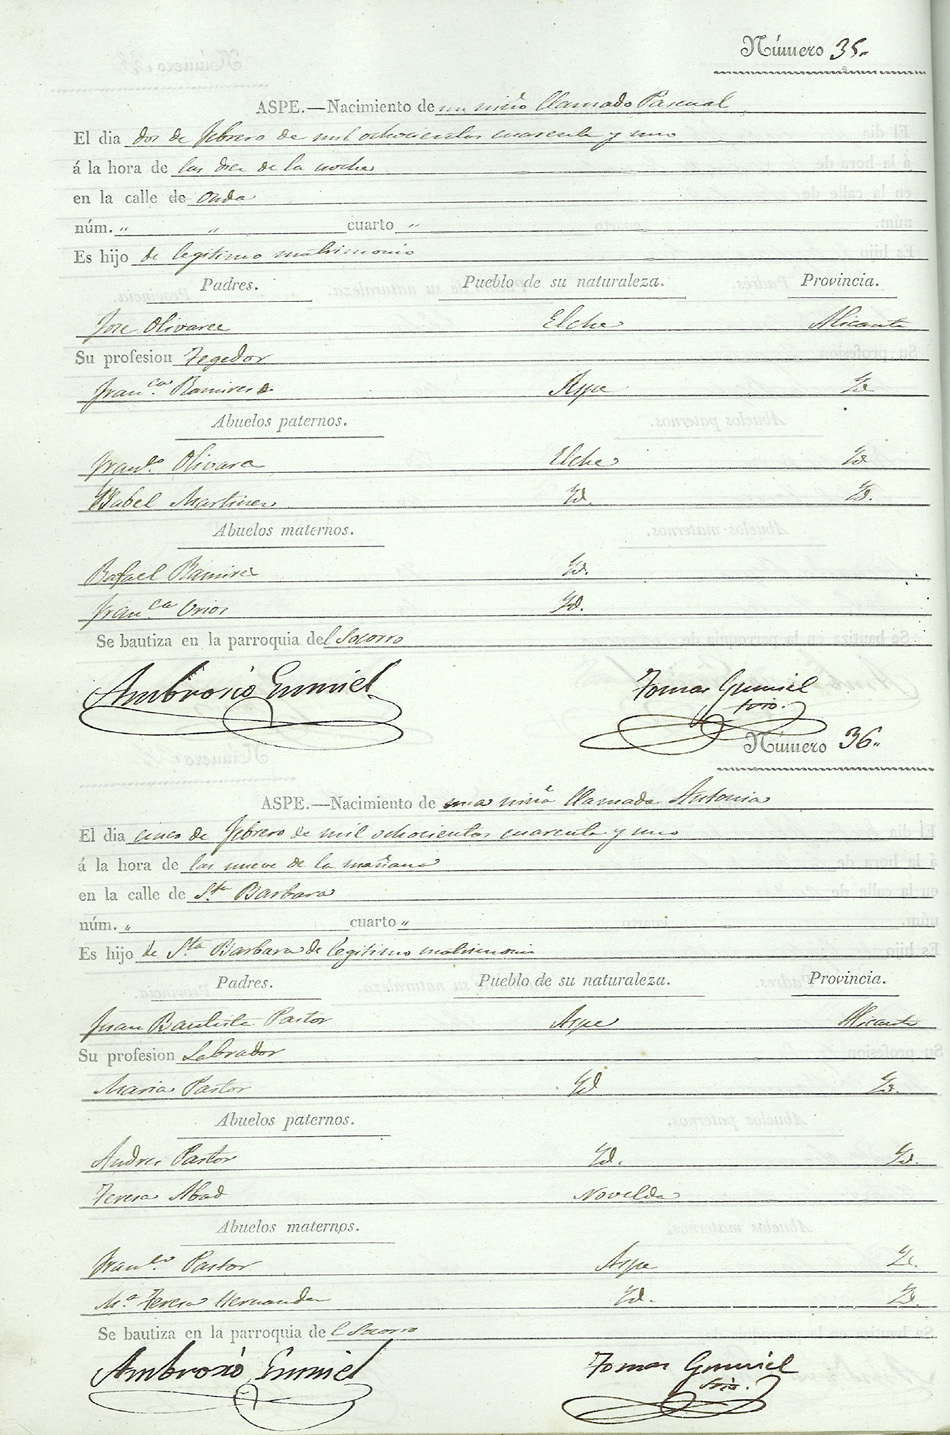 Número 35.
ASPE.—Nacimiento de un niño llamado Pascual
El dia dos de febrero de mil ochocientos cuarenta y uno
á la hora de las diez de la noche
en la calle de Onda
núm. „ „ cuarto „
Es hijo de legitimo matrimonio
Padres. Pueblo de su naturaleza. Provincia.
Jose Olivares Elche Alicante
Su profesion Tegedor
Fran.ca Ramirez Aspe Yd
Abuelos paternos.
Fran.co Olivares Elche Yd
Ysabel Martinez Yd. Yd.
Abuelos maternos.
Rafael Ramirez Yd.
Fran.ca Orios Yd.
Se bautiza en la parroquia del Socorro
Ambrosio Gumiel Tomas Gumiel
srio.
Número 36.
ASPE.—Nacimiento de una niña llamada Antonia
El dia cinco de febrero de mil ochocientos cuarenta y uno
á la hora de las nueve de la mañana
en la calle de Sta. Barbara
núm. „ cuarto „
Es hijo de Sta Barbara de legitimo matrimonio
Padres. Pueblo de su naturaleza. Provincia.
Juan Bautista Pastor Aspe Alicante
Su profesion Labrador
Maria Pastor Yd Yd.
Abuelos paternos.
Andres Pastor Yd. Yd.
Teresa Abad Novelda
Abuelos maternos.
Fran.co Pastor Aspe Yd.
Mª Teresa Hernandez Yd. Yd.
Se bautiza en la parroquia del Socorro
Ambrosio Gumiel Tomas Gumiel
srio.